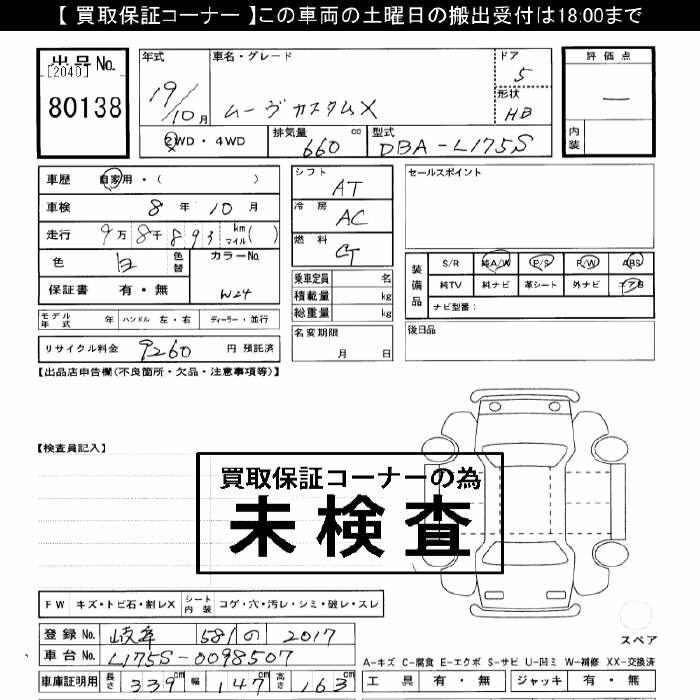 【 買取保証コーナー 】この車両の土曜日の搬出受付は18:00まで
出品No.
[2040]
80138
年式
19/10月
車名・グレード
ムーヴカスタムX
ドア
5
形状
HB
評価点
—
内装
2WD・4WD
排気量
660 cc
型式
DBA-L175S
車歴 自家用・( )
車検 8年 10月
走行 9万8千893 km マイル( )
色 白 色替
カラーNo.
W24
保証書 有・無
モデル年式 年 ハンドル 左・右 ディーラー・並行
リサイクル料金 9260 円 預託済
シフト
AT
冷房
AC
燃料
G
乗車定員 名
積載量 kg
総重量 kg
名変期限
月 日
セールスポイント
装備品
S/R 純A/W P/S P/W ABS
純TV 純ナビ 革シート 外ナビ エアB
ナビ型番:
後日品
【出品店申告欄(不良箇所・欠品・注意事項等)】
【検査員記入】
買取保証コーナーの為
未検査
FW キズ・トビ石・割レX シート内装 コゲ・穴・汚レ・シミ・破レ・スレ
登録No. 岐阜 581 の 2017
車台No. L175S-0098507
車庫証明用 長さ 339cm 幅 147cm 高さ 163cm
スペア
A-キズ C-腐食 E-エクボ S-サビ U-凹ミ W-補修 XX-交換済
工具 有・無 ジャッキ 有・無